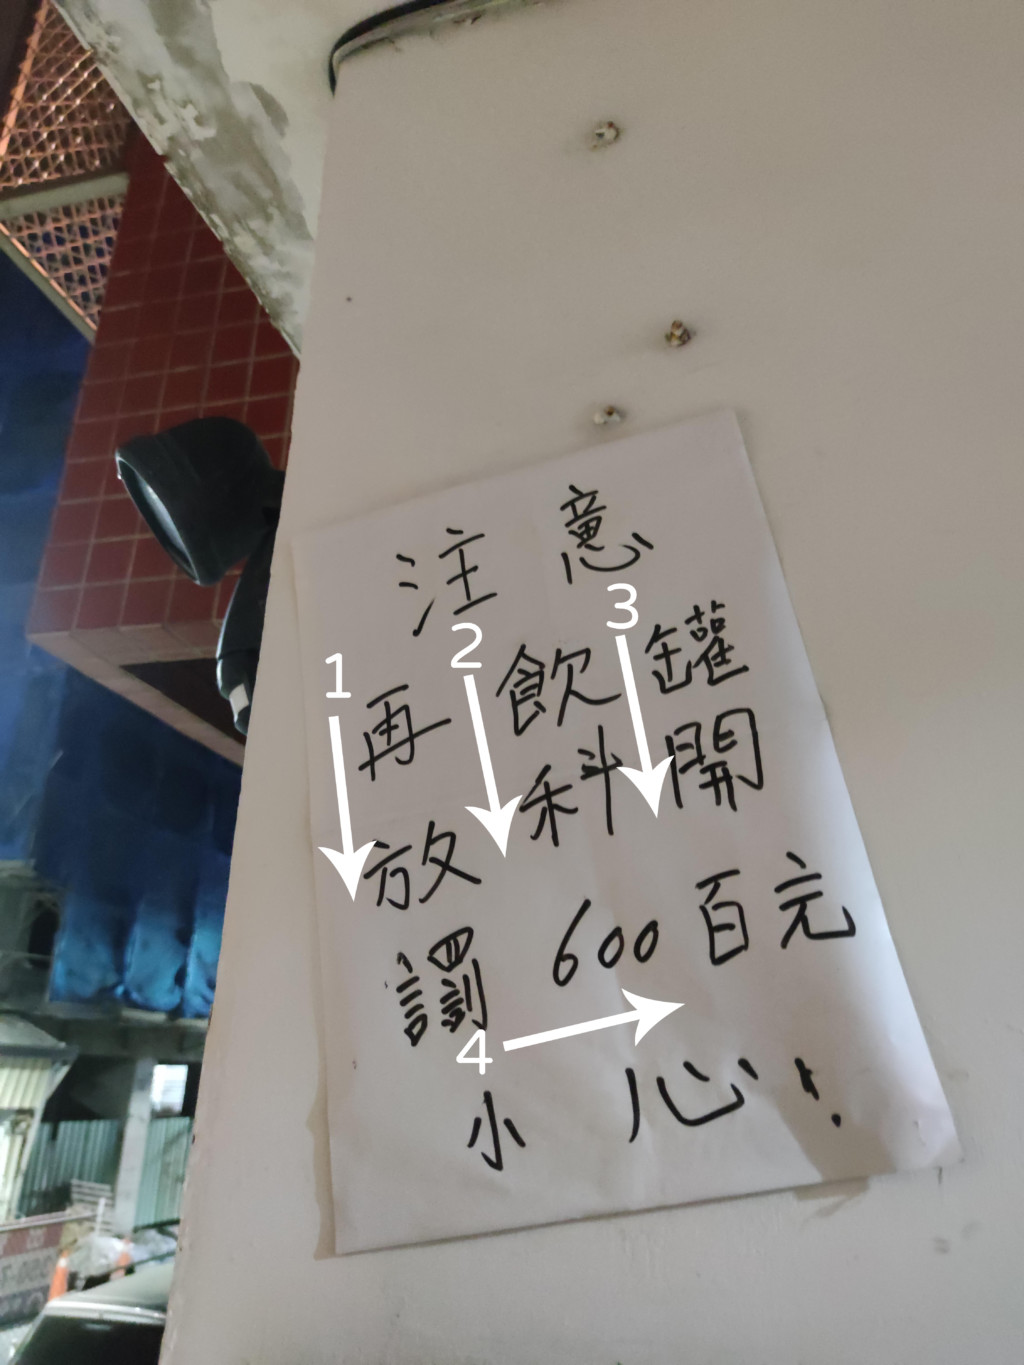 注意
1
再放
2
飲科
3
罐開
罰600百元
4
小心!